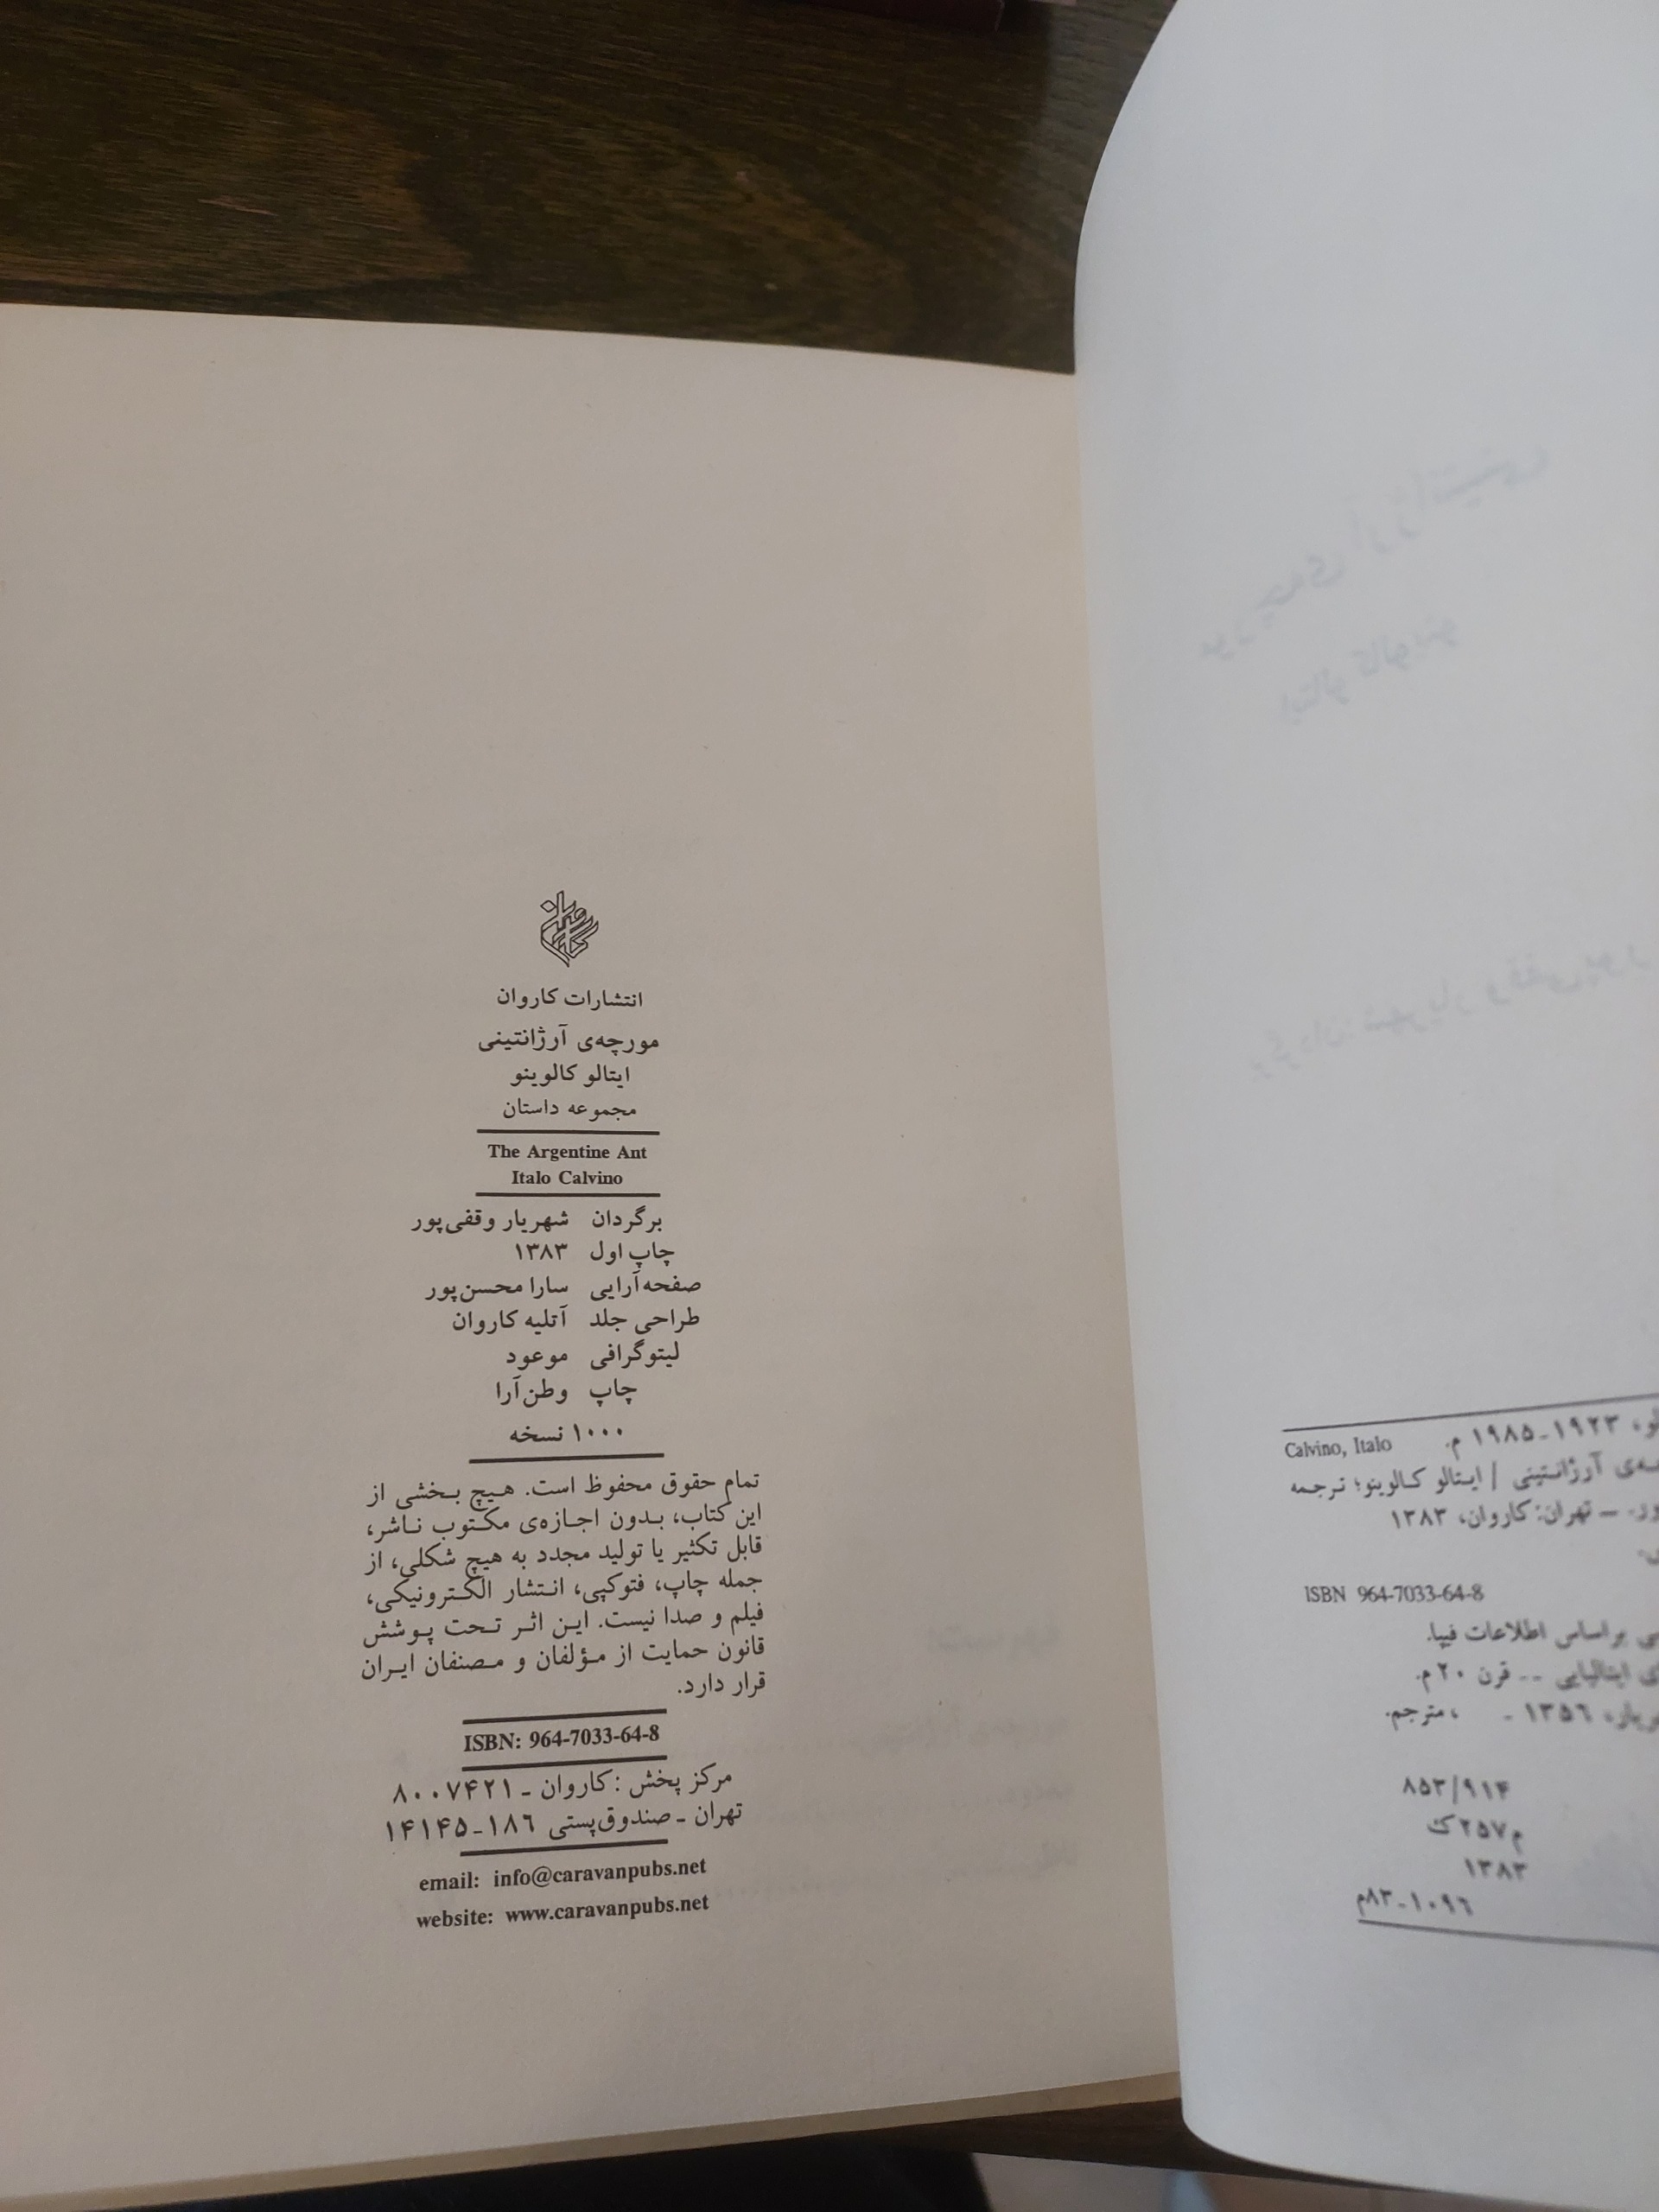 انتشارات کاروان
مورچه‌ی آرژانتینی
ایتالو کالوینو
مجموعه داستان
The Argentine Ant
Italo Calvino
برگردان شهریار وقفی‌پور
چاپ اول ۱۳۸۳
صفحه‌آرایی سارا محسن‌پور
طراحی جلد آتلیه کاروان
لیتوگرافی موعود
چاپ وطن‌آرا
۱۰۰۰ نسخه
تمام حقوق محفوظ است. هیچ بخشی از
این کتاب، بدون اجازه‌ی مکتوب ناشر،
قابل تکثیر یا تولید مجدد به هیچ شکلی، از
جمله چاپ، فتوکپی، انتشار الکترونیکی،
فیلم و صدا نیست. این اثر تحت پوشش
قانون حمایت از مؤلفان و مصنفان ایران
قرار دارد.
ISBN: 964-7033-64-8
مرکز پخش : کاروان ـ ۸۰۰۷۴۲۱
تهران ـ صندوق‌پستی ۱۸۶-۱۴۱۴۵
email: info@caravanpubs.net
website: www.caravanpubs.net
۱۹۲۳-۱۹۸۵ م. Calvino, Italo
آرژانتینی / ایتالو کالوینو؛ ترجمه
ـ تهران: کاروان، ۱۳۸۳
ISBN 964-7033-64-8
براساس اطلاعات فیپا.
ایتالیایی -- قرن ۲۰ م.
۱۳۵۶ - ، مترجم.
۸۵۳/۹۱۴
م۲۵۷ک
۱۳۸۳
۸۳-۱۰۹۶م